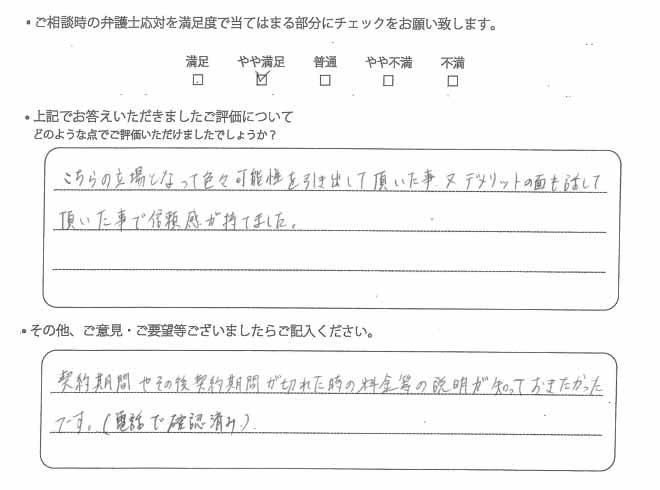 ・ご相談時の弁護士応対を満足度で当てはまる部分にチェックをお願い致します。
満足 やや満足 普通 やや不満 不満
□ ☑ □ □ □
・上記でお答えいただきましたご評価について
どのような点でご評価いただけましたでしょうか？
こちらの立場となって色々可能性を引き出して頂いた事、又デメリットの面も話して
頂いた事で信頼感が持てました。
・その他、ご意見・ご要望等ございましたらご記入ください。
契約期間やその後契約期間が切れた時の料金等の説明が知っておきたかった
です。(電話で確認済み)